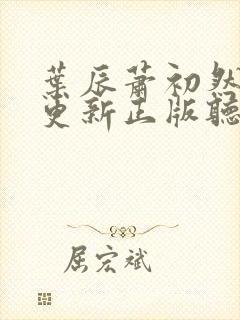 葉辰蕭初然
更新正版聽
屈宏斌